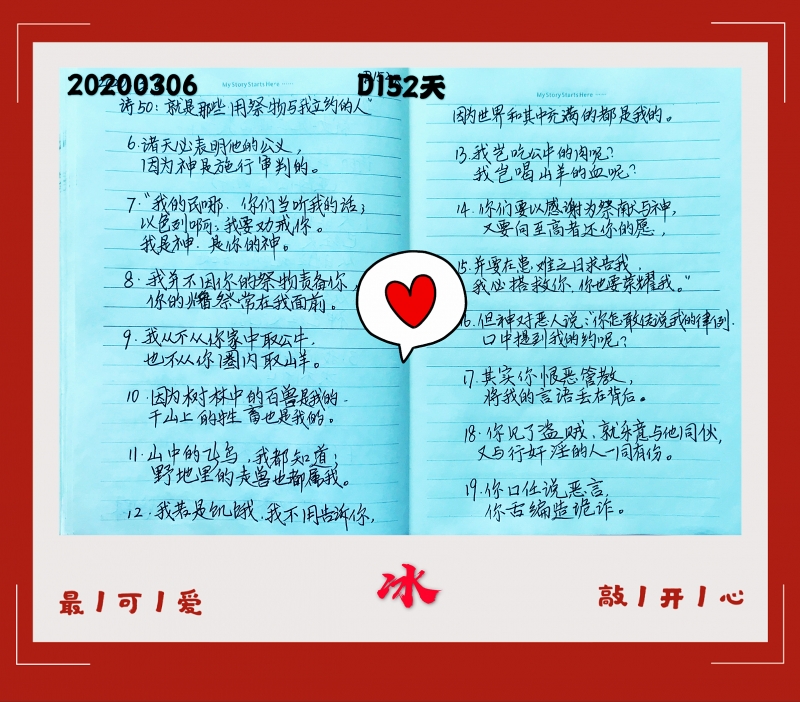 20200306
D152天
My Story Starts Here ······
诗50：就是那些用祭物与我立约的人"
6.诸天必表明他的公义，
因为神是施行审判的。
7."我的民哪，你们当听我的话；
以色列啊，我要劝戒你。
我是神，是你的神。
8.我并不因你的祭物责备你，
你的燔祭常在我面前。
9.我从不从你家中取公牛，
也不从你圈内取山羊。
10.因为树林中的百兽是我的.
千山上的牲畜也是我的。
11.山中的飞鸟，我都知道；
野地里的走兽也都属我。
12.我若是饥饿，我不用告诉你，
My Story Starts Here ······
因为世界和其中充满的都是我的。
13.我岂吃公牛的肉呢？
我岂喝山羊的血呢？
14.你们要以感谢为祭献与神，
又要向至高者还你的愿，
15.并要在患难之日求告我，
我必搭救你，你也要荣耀我。"
16.但神对恶人说："你怎敢传说我的律例.
口中提到我的约呢？
17.其实你恨恶管教，
将我的言语丢在背后。
18.你见了盗贼，就乐意与他同伙，
又与行奸淫的人一同有份。
19.你口任说恶言，
你舌编造诡诈。
最丨可丨爱
冰
敲丨开丨心